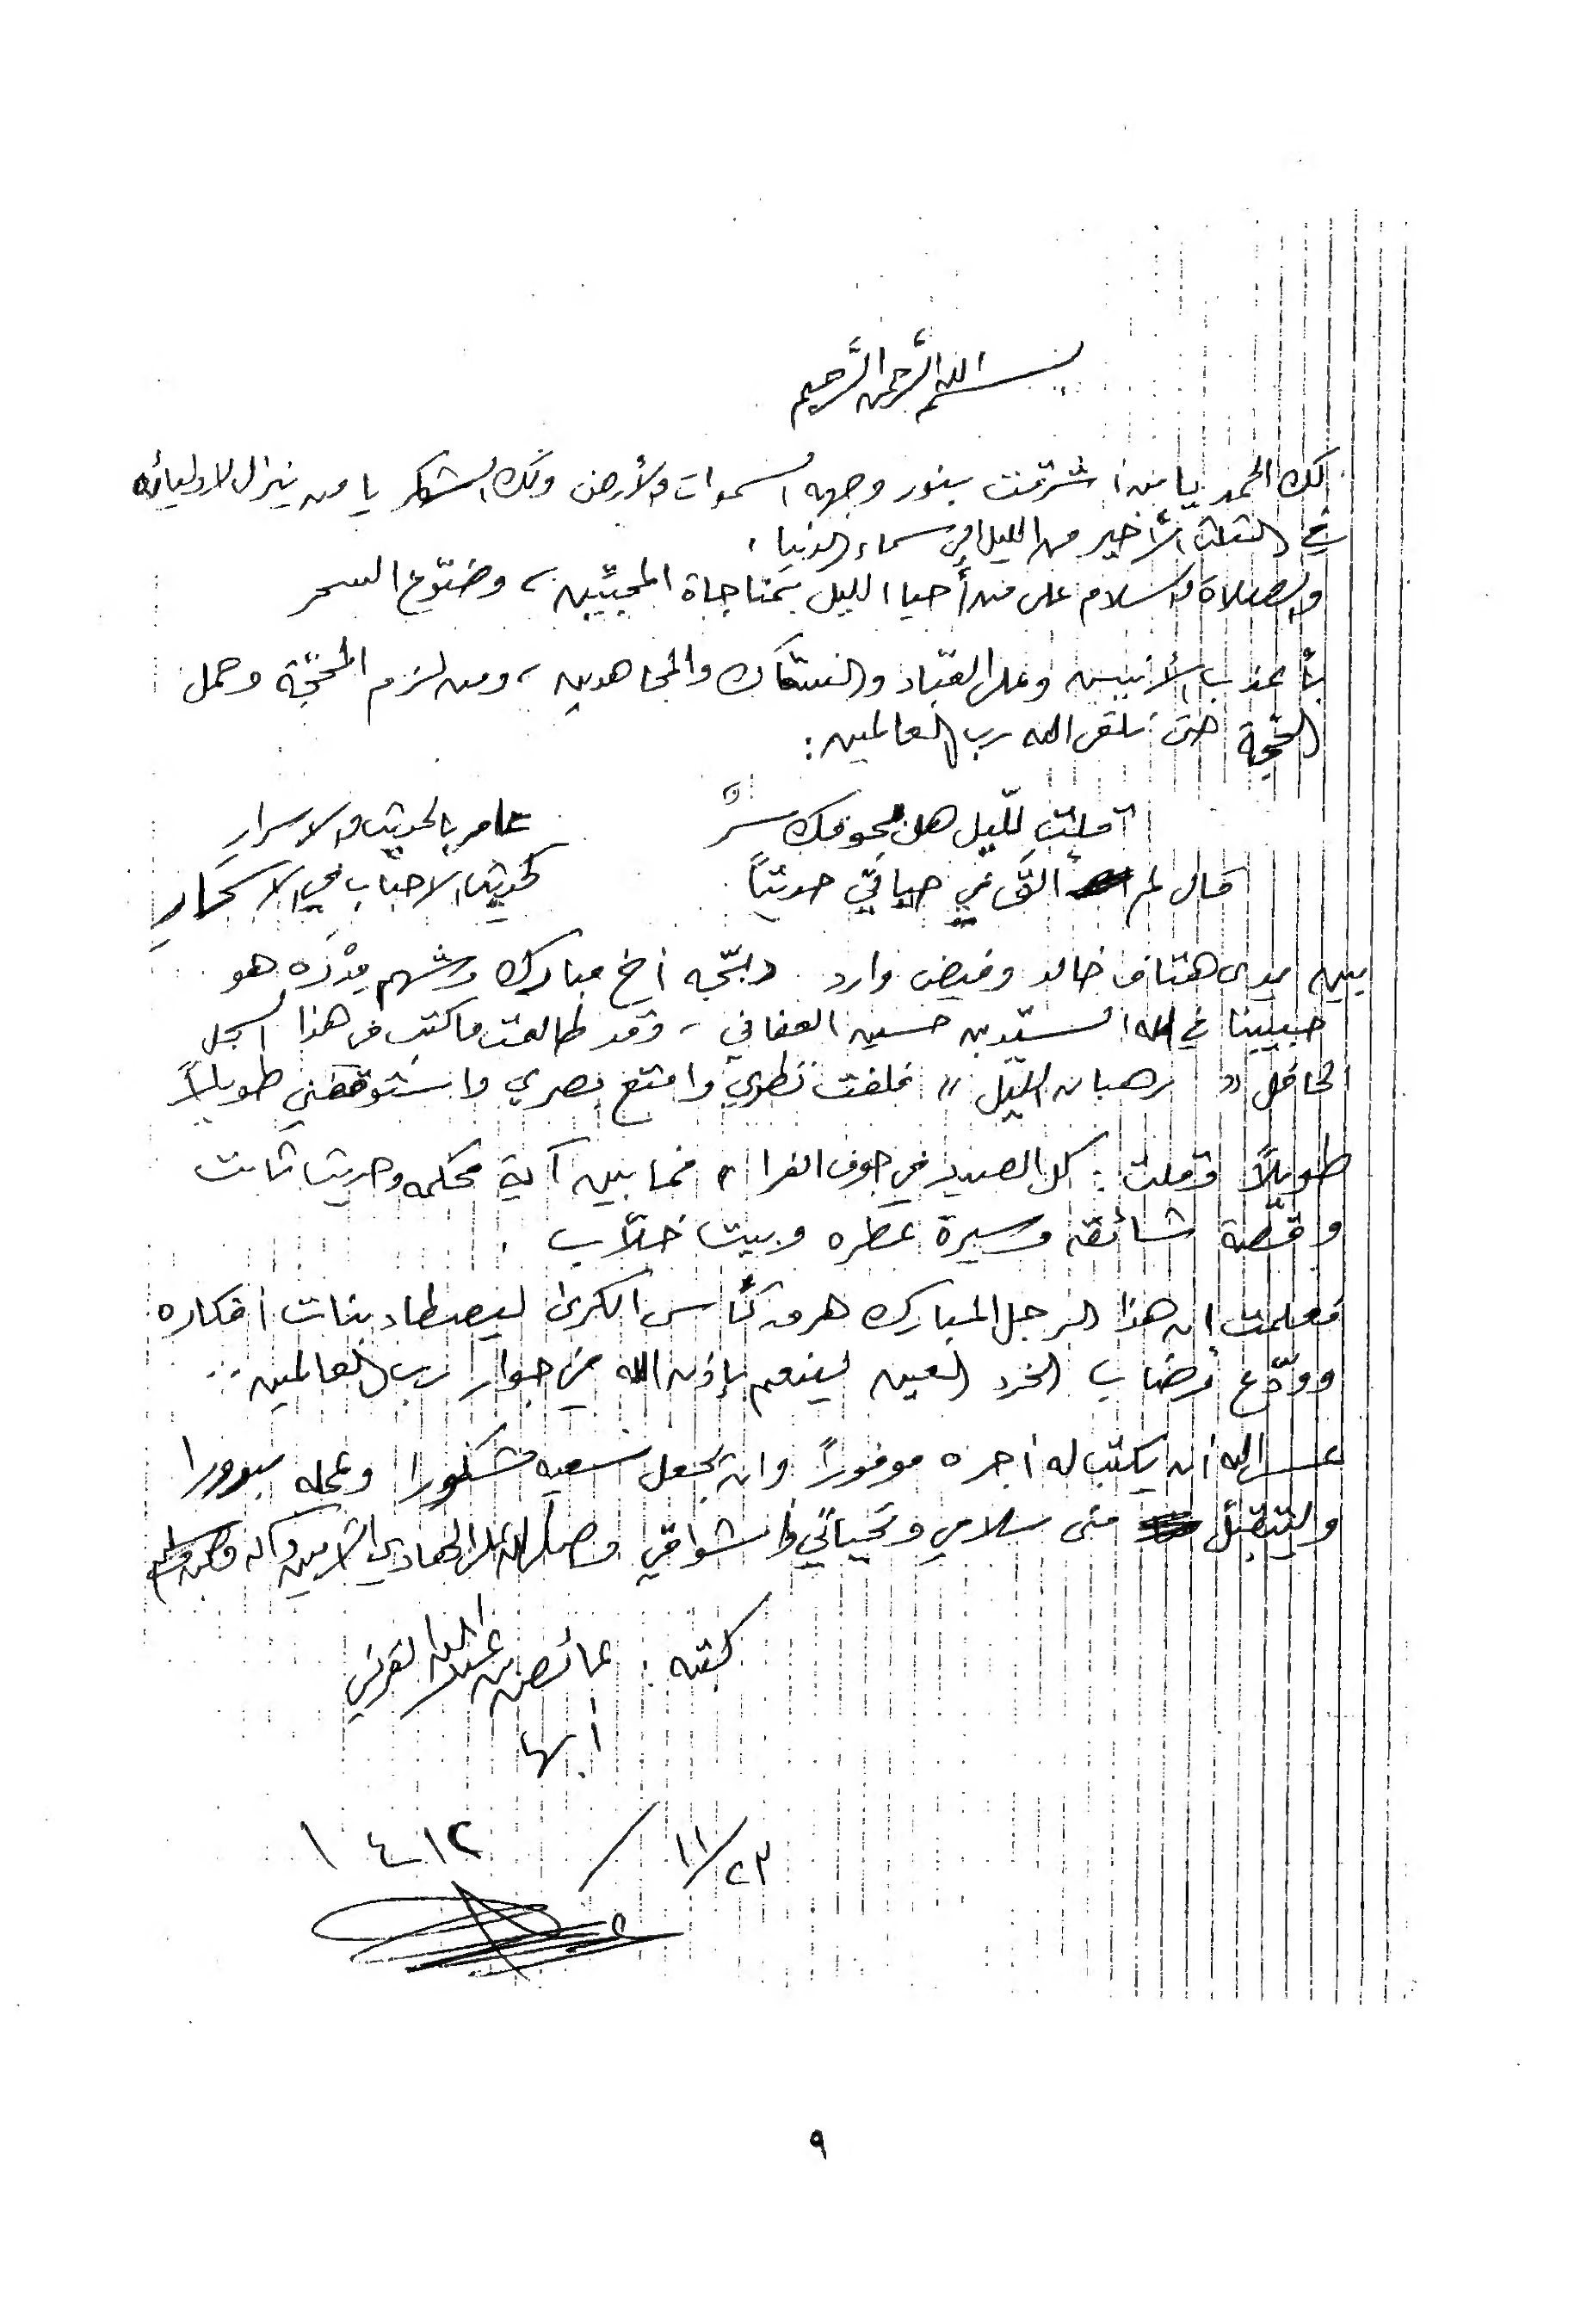 بسم الله الرَّحمن الرَّحيم
لك الحمد يا من أشرقت بنور وجهه السموات والأرض ولك الشكر يا من ينزل لاوليائه
في الثلث الأخير من الليل إلى سماء الدنيا .
والصلاة والسلام على من أحيا الليل بمناجاة المحبّين ، وضوّع السحر
بأعذب الأنين وعلى العبّاد والنسّاك والمجاهدين ، ومن لزم المحجّة وحمل
الحجّة حتى نلقى الله رب العالمين :
قلت للّيل هل بجوفك سرٌّ
عامر بالحديث والاسرارِ
قال لم ألقَ في حياتي حديثاً
كحديث الاحباب في الاسحارِ
بين يدي هتاف خالد وفيض وارد دبّجه أخ مبارك وشهم مِدْرَه هو
حبيبنا في الله السيّد بن حسين العفاني ، وقد طالعت ما كتب في هذا السجل
الحافل " رهبان الليل " فلفت نظري وامتع بصري واستوقفني طويلاً
طويلاً وقلت : كل الصيد في جوف الفرا ، فما بين آية محكمه وحديث ثابت
وقصّة شائقه وسيرة عطره وبيت خلاّب .
فعلمت ان هذا الرجل المبارك هرق كأس الكرى ليصطاد بنات أفكاره
وودّع رضاب الخرد العين لينعم بإذن الله في جوار رب العالمين ..
عسى الله أن يكتب له أجره موفوراً وان يجعل سعيه مشكورا وعمله مبرورا
وليتقبّل منى سلامي وتحياتي وأشواقي وصلى الله على الهادي الأمين وآله وصحبه وسلم
كتبه : عائض بن عبدالله القرني
أبها
٢٣/١١/١٤١٢
٩